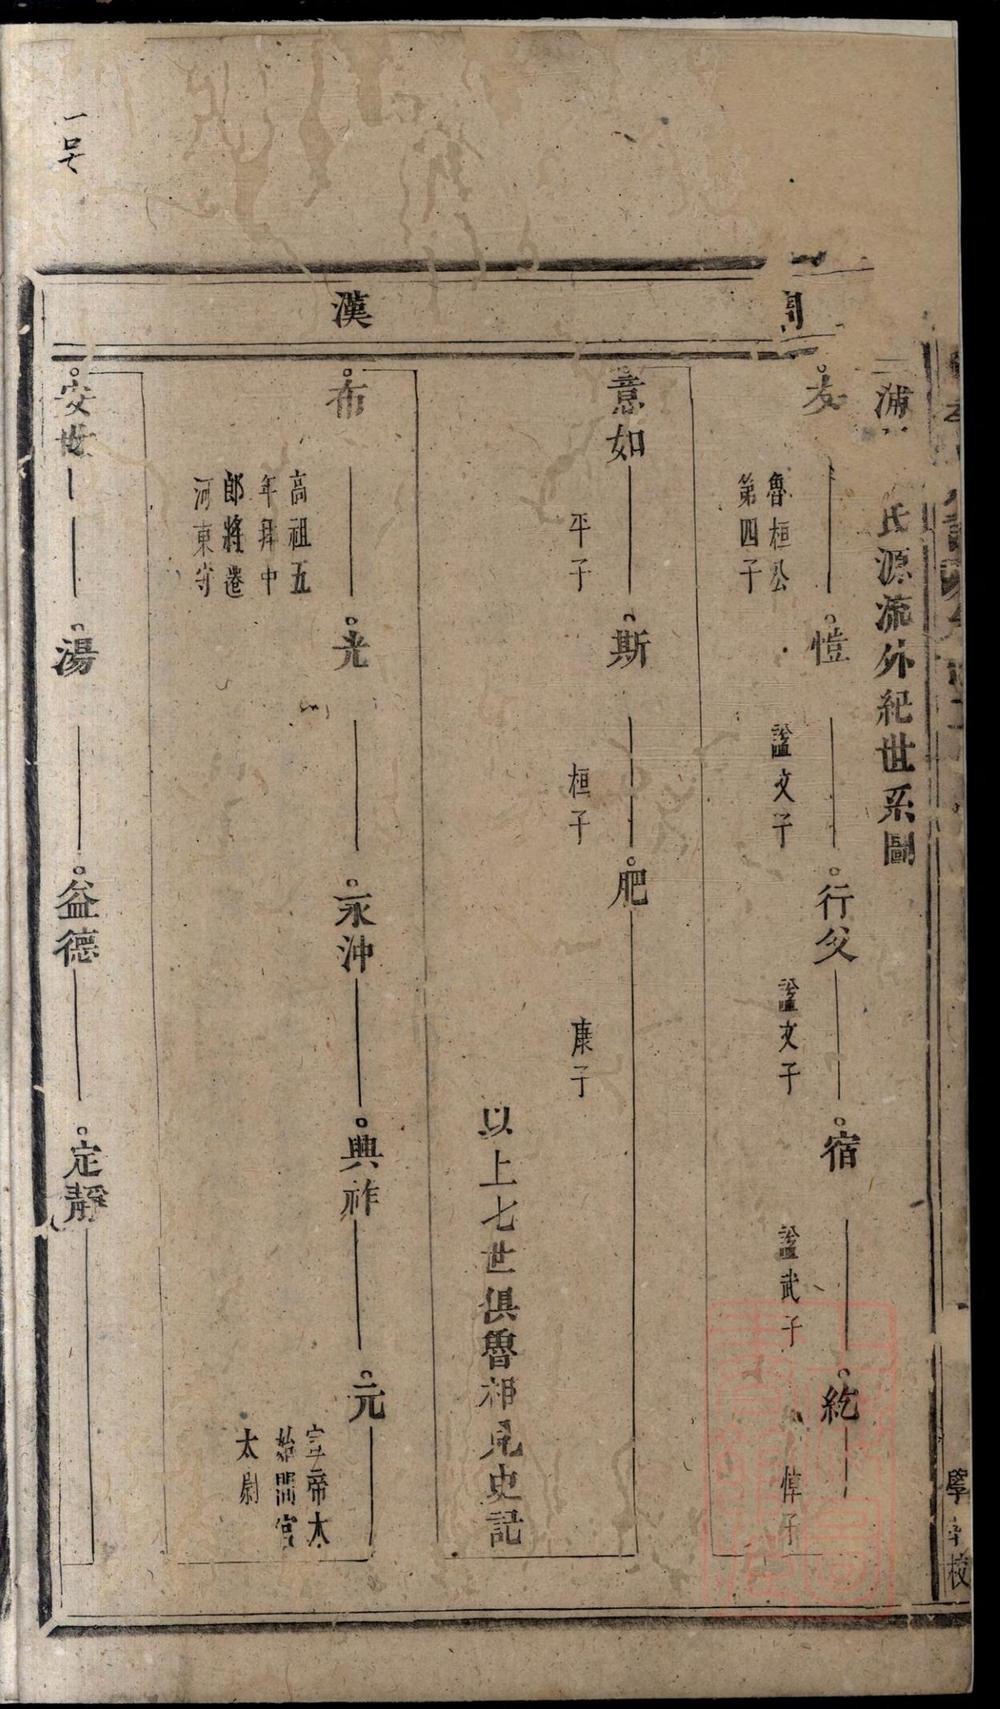 一号
漢
浦 氏源流外紀世系圖
友
魯桓公
第四子
愷
謚文子
行父
謚文子
宿
謚武子
紇
悼子
意如
平子
斯
桓子
肥
康子
以上七世俱魯相見史記
布
高祖五
年拜中
郎將遷
河東守
光
永沖
興祚
元
宣帝太
始間官
太尉
安世
湯
益德
定靜